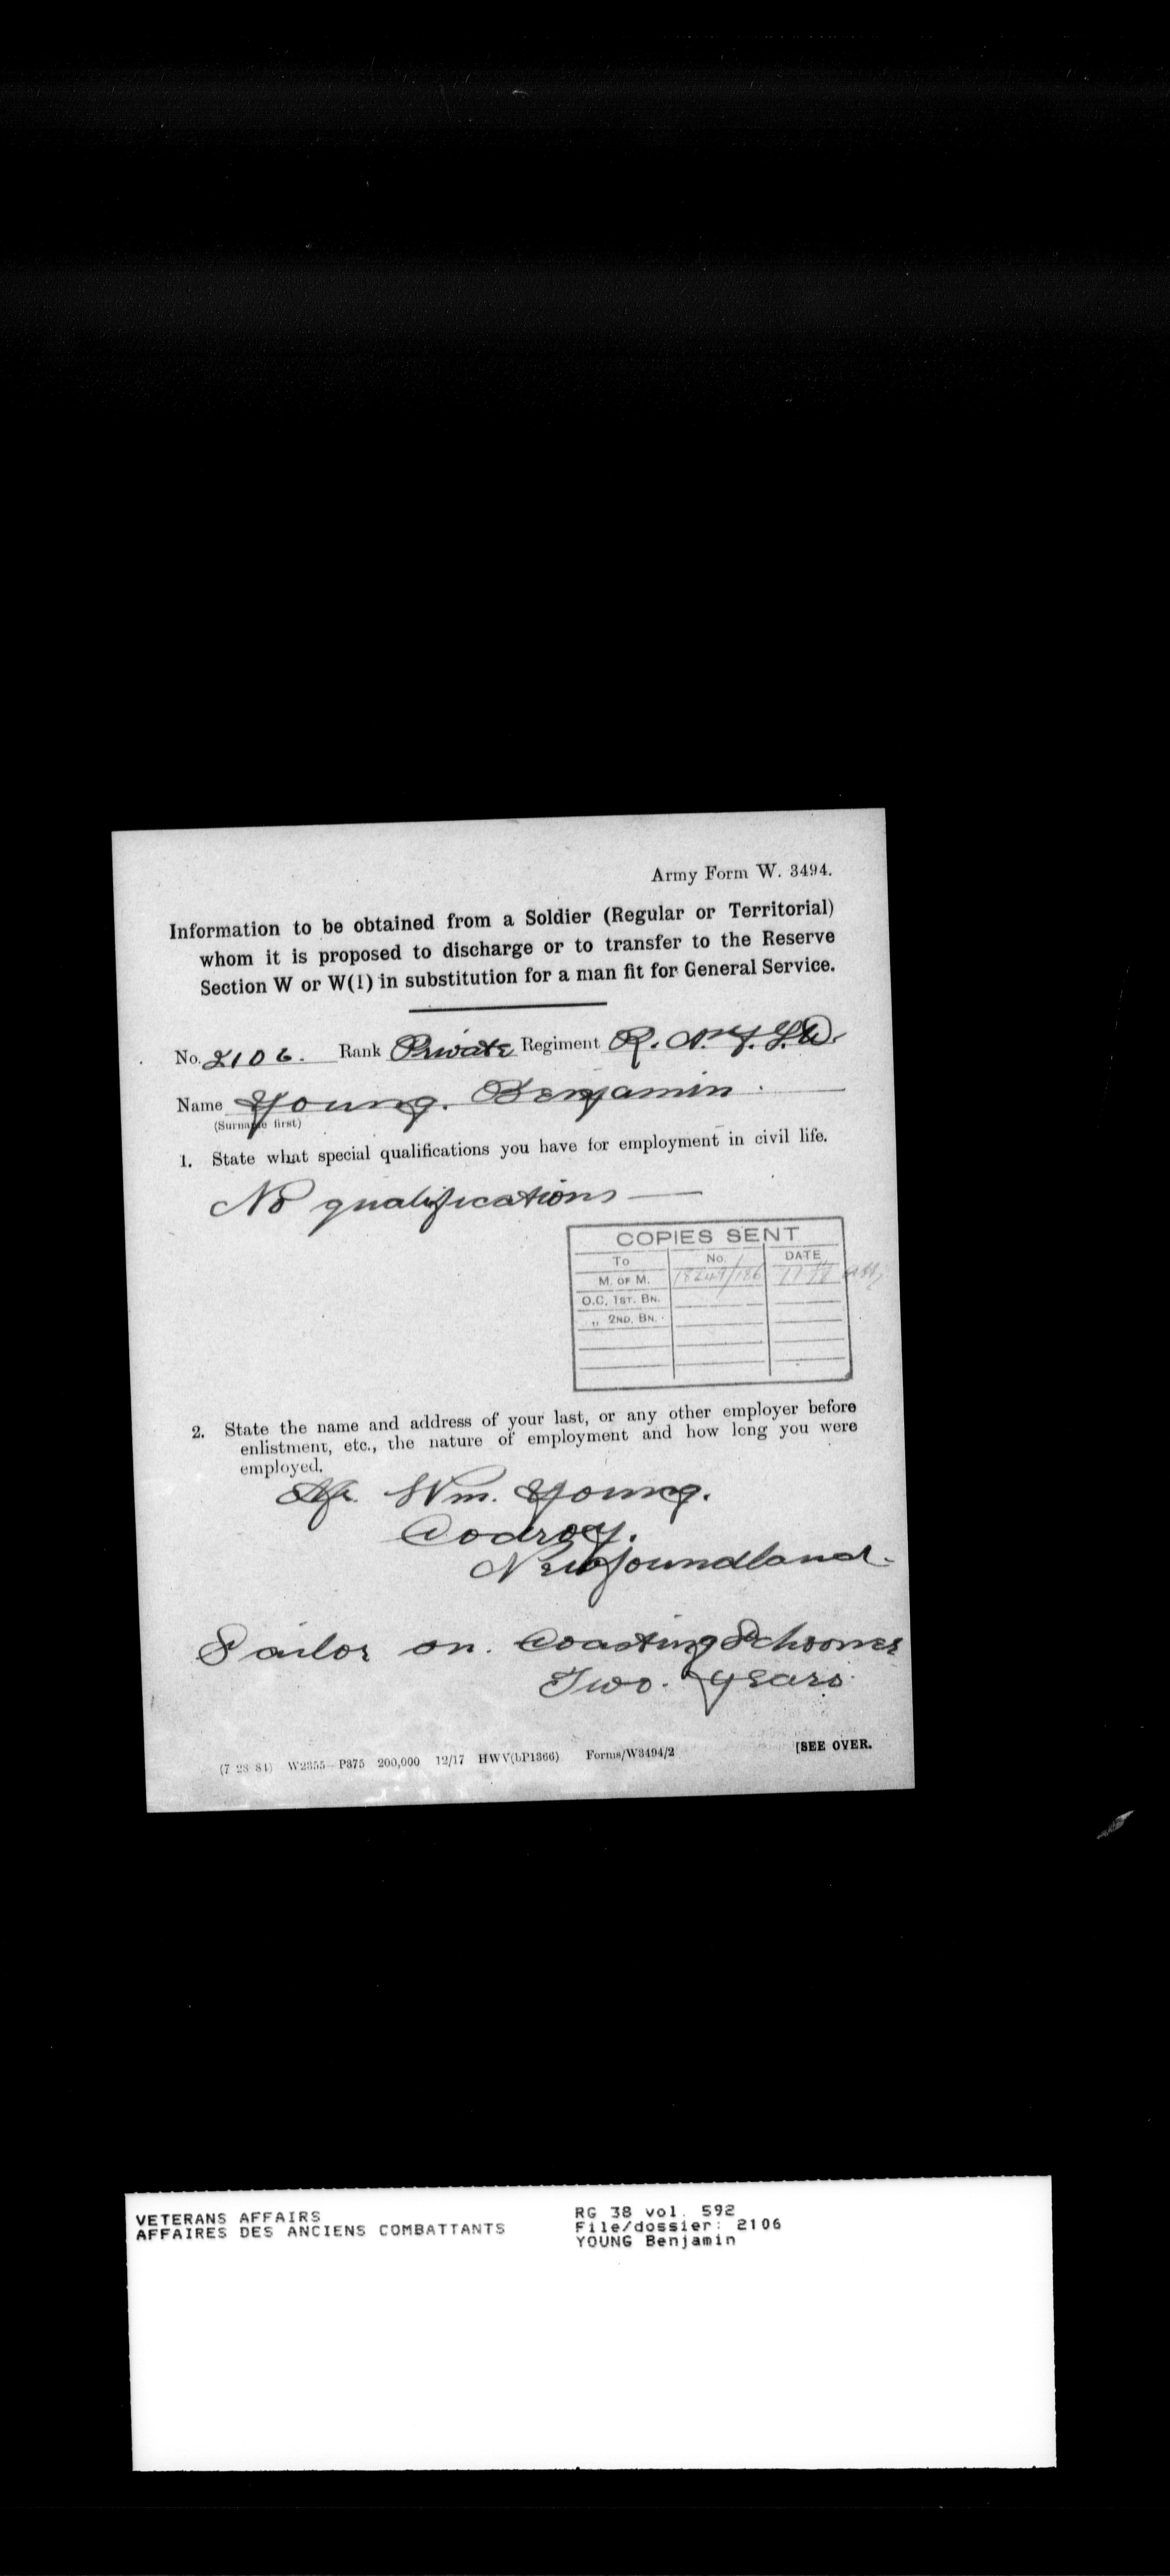 Army Form W. 3494.
Information to be obtained from a Soldier (Regular or Territorial)
whom it is proposed to discharge or to transfer to the Reserve
Section W or W(1) in substitution for a man fit for General Service.
No. 2106. Rank Private Regiment R.
Name Young. Benjamin.
(Surname first)
1. State what special qualifications you have for employment in civil life.
No qualifications —
COPIES SENT
To No. DATE
M. OF M.
O.C. 1ST. BN.
„ 2ND. BN.
2. State the name and address of your last, or any other employer before
enlistment, etc., the nature of employment and how long you were
employed.
Wm. Young.
Codroy.
Newfoundland.
Sailor on. Coasting Schooner
Two. years.
(7 28 84) W2355—P375 200,000 12/17 HWV(P1366) Forms/W3494/2
[SEE OVER.
VETERANS AFFAIRS
AFFAIRES DES ANCIENS COMBATTANTS
RG 38 vol. 592
File/dossier: 2106
YOUNG Benjamin